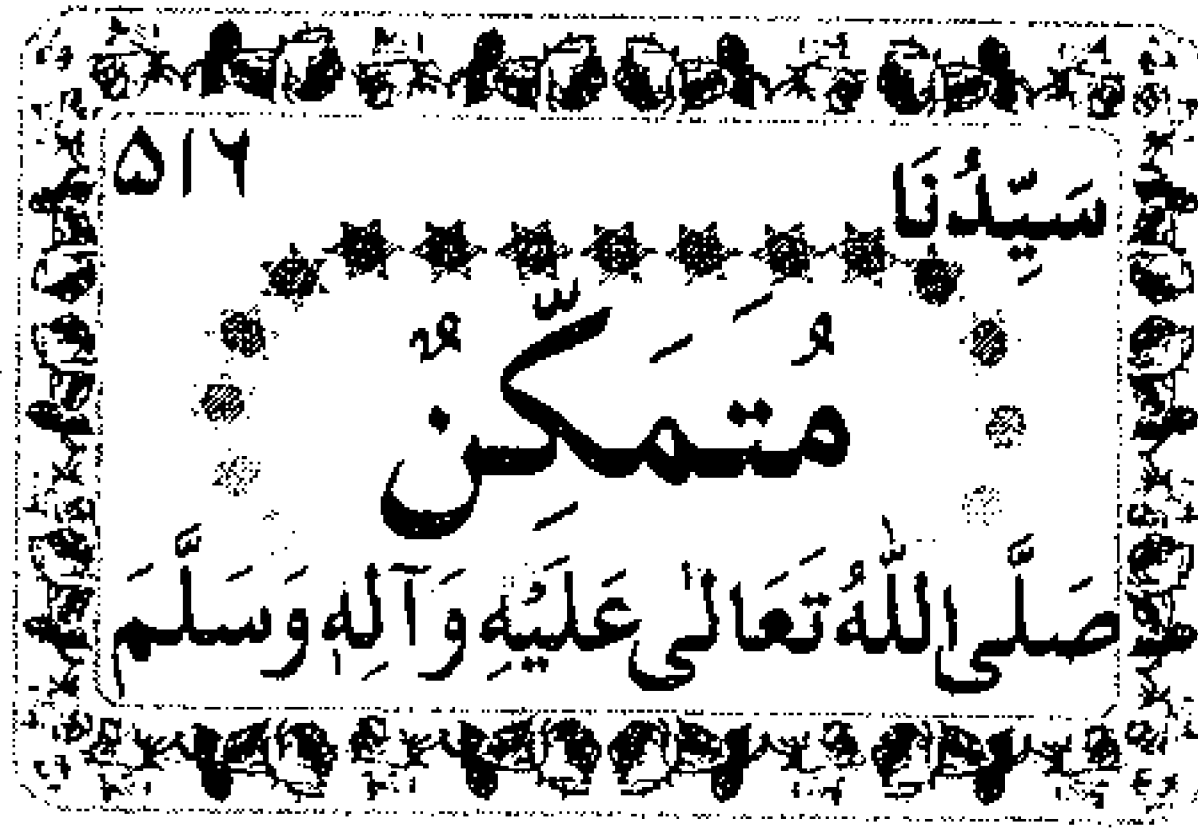 ۵۱۲
سَیِّدُنَا
مُتَمَکِّنٌ
صَلَّی اللّٰهُ تَعَالٰی عَلَیْهِ وَآلِهٖ وَسَلَّمَ